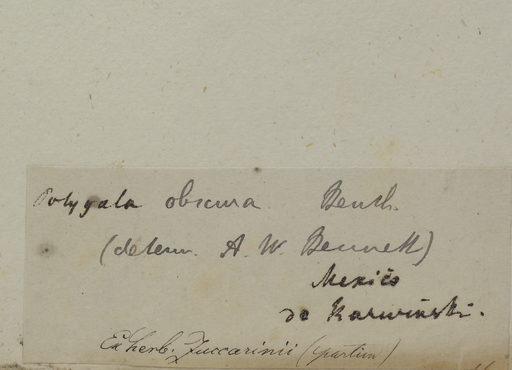 Polygala obscura Benth.
(determ. A. W. Bennett)
Mexico
de Karwinski.
Ex herb. Zuccarinii (partim)